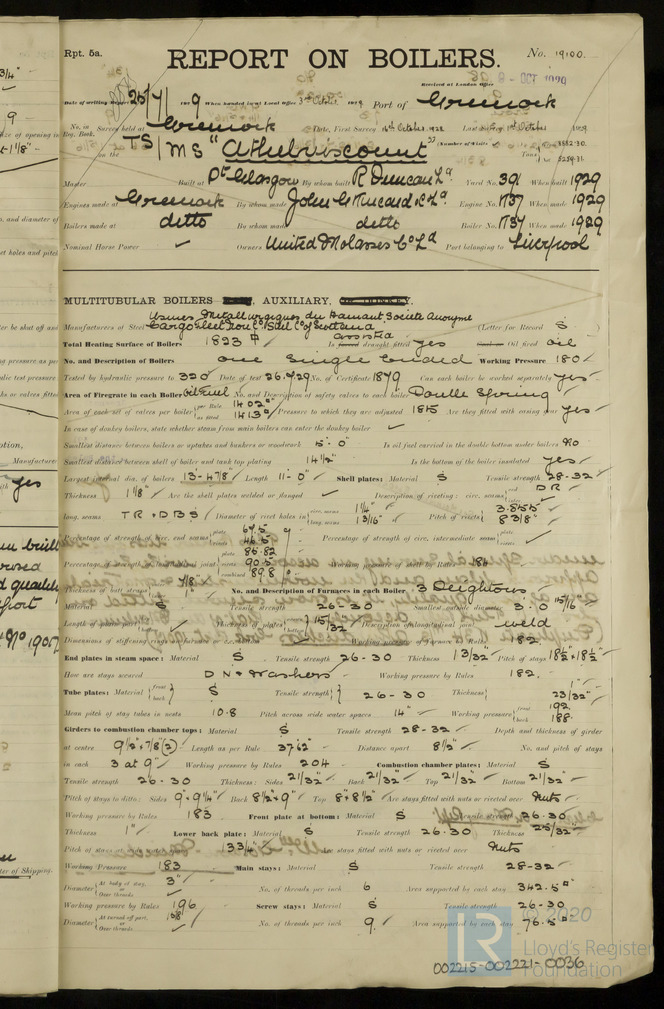 Rpt. 5a.
REPORT ON BOILERS.
No. 19100.
Received at London Office 8 - OCT 1929
Date of writing Report 25/7/1929 When handed in at Local Office 3rd October 1929 Port of Greenock
No. in Reg. Book. Survey held at Greenock Date, First Survey 16th October 1928 Last Survey 1st October 1929
on the TS/MS "Athelviscount" (Number of Visits Tons
Master Built at Pt Glasgow By whom built R Duncan Ld Yard No. 391 When built 1929
Engines made at Greenock By whom made John G Kincaid & Co Ld Engine No. 1737 When made 1929
Boilers made at ditto By whom made ditto Boiler No. 1737 When made 1929
Nominal Horse Power ✓ Owners United Molasses Co Ld Port belonging to Liverpool
MULTITUBULAR BOILERS , AUXILIARY,
Usines Metallurgiques du Hainaut Societe Anonyme
Manufacturers of Steel Cargo Fleet Iron Co, Steel Co of Scotland (Letter for Record S
Total Heating Surface of Boilers 1823 Is assisted draught fitted yes Oil fired oil
No. and Description of Boilers one Single Ended Working Pressure 180
Tested by hydraulic pressure to 320 Date of test 26.4.29 No. of Certificate 1879 Can each boiler be worked separately yes
Area of Firegrate in each Boiler Oil Fuel No. and Description of safety valves to each boiler Double Spring
Area of each set of valves per boiler per Rule 14.02 as fitted 14.13 Pressure to which they are adjusted 185 Are they fitted with easing gear yes
In case of donkey boilers, state whether steam from main boilers can enter the donkey boiler ✓
Smallest distance between boilers or uptakes and bunkers or woodwork 5'-0" Is oil fuel carried in the double bottom under boilers No
Smallest distance between shell of boiler and tank top plating 14½" Is the bottom of the boiler insulated yes
Largest internal dia. of boilers 13-4 7/8" Length 11'-0" Shell plates: Material S Tensile strength 28-32
Thickness 1 1/8" Are the shell plates welded or flanged ✓ Description of riveting: circ. seams DR
long. seams TR & DBS Diameter of rivet holes in circ. seams 1¼ long. seams 1 3/16" Pitch of rivets 3.855 8 3/8"
Percentage of strength of circ. end seams plate 67.5 rivets 46.5 Percentage of strength of circ. intermediate seam
Percentage of strength of longitudinal joint plate 85.82 rivets 90.5 combined 89.8 Working pressure of shell by Rules 184
Thickness of butt straps 7/8" 1" No. and Description of Furnaces in each Boiler 3 Deightons
Material S Tensile strength 26-30 Smallest outside diameter 3'-0 15/16"
Length of plain part Thickness of plates 15/32" Description of longitudinal joint weld
Dimensions of stiffening rings Working pressure of furnace by Rules 182.
End plates in steam space: Material S Tensile strength 26-30 Thickness 1 3/32" Pitch of stays 18½" x 18½"
How are stays secured DN & Washers Working pressure by Rules 182.
Tube plates: Material front back S Tensile strength 26-30 Thickness 23/32"
Mean pitch of stay tubes in nests 10.8 Pitch across wide water spaces 14" Working pressure front 192 back 188
Girders to combustion chamber tops: Material S Tensile strength 28-32 Depth and thickness of girder
at centre 9½" x 7/8 (2) Length as per Rule Distance apart 8½" No. and pitch of stays
in each 3 at 9" Working pressure by Rules 204 Combustion chamber plates: Material S
Tensile strength 26-30 Thickness: Sides 21/32" Back 21/32" Top 21/32" Bottom 21/32"
Pitch of stays to ditto: Sides 9" x 9¼" Back 8½" x 9" Top 8" x 8½" Are stays fitted with nuts or riveted over Nuts
Working pressure by Rules 183 Front plate at bottom: Material S Tensile strength 26-30
Thickness 1" Lower back plate: Material S Tensile strength 26-30 Thickness 25/32"
Pitch of stays 13¼ Are stays fitted with nuts or riveted over Nuts
Working Pressure 183 Main stays: Material S Tensile strength 28-32
Diameter At body of stay, or Over threads 3" No. of threads per inch 6 Area supported by each stay 342.5
Working pressure by Rules 196 Screw stays: Material S Tensile strength 26-30
Diameter At turned off part, or Over threads 1 5/8" No. of threads per inch 9 Area supported by each stay 76.5
© 2020
Lloyd's Register
Foundation
002215-002221-0036